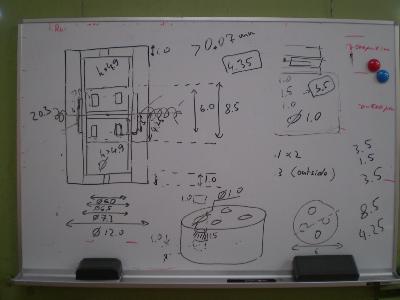 1.0
> 0.07 mm
4.35
h=4.9
20.3
6.0
8.5
h>4.9
Ø
1.0
Ø6.0
Ø6.5
Ø7.3
Ø 12.0
1.0
1.5
3.5
1.0
Ø 1.0
1 x 2
3 (outside)
3.5
1.5
3.5
8.5
4.25
1.0
Ø1.0
1.5
1.0
6